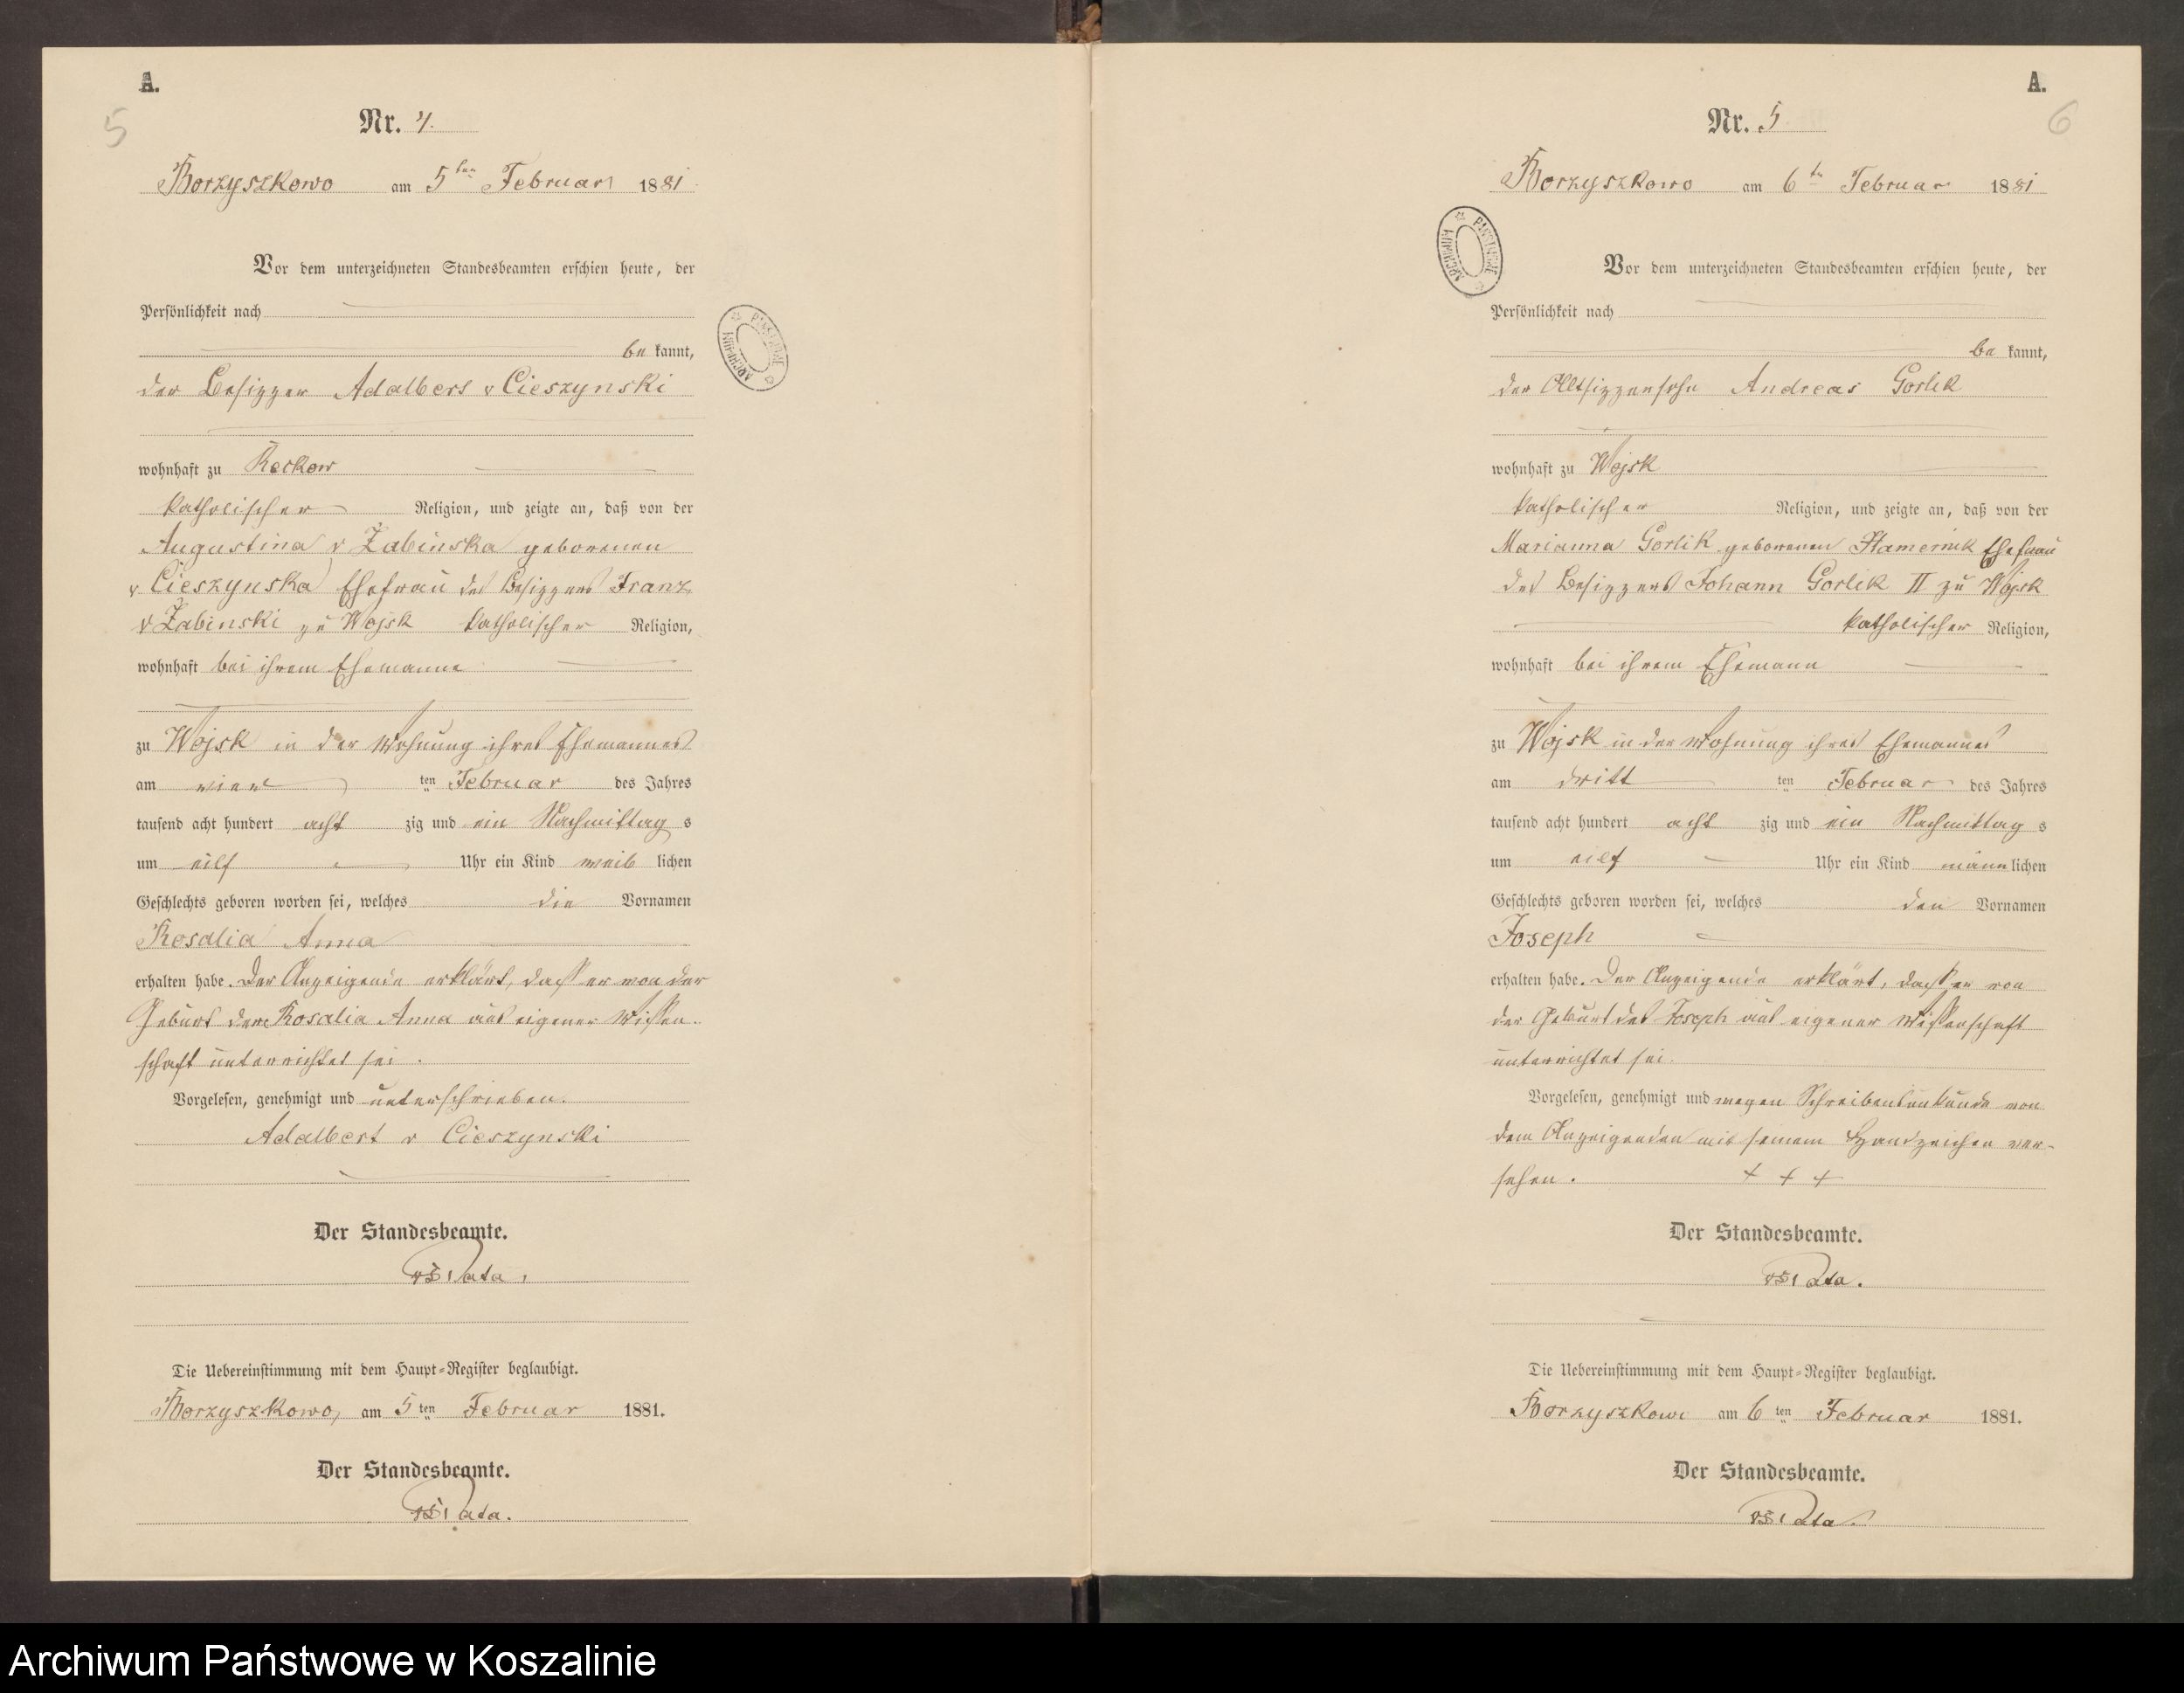 A.
5
Nr. 4.
Borzyszkowo am 5ten Februar 1881.
Vor dem unterzeichneten Standesbeamten erschien heute, der
Persönlichkeit nach
be kannt,
der Besitzer Adalbert v Cieszynski
wohnhaft zu Reckow
katholischer Religion, und zeigte an, daß von der
Augustina v Żabinska geborenen
v Cieszynska Ehefrau des Besitzers Franz
v Żabinski zu Wojsk katholischer Religion,
wohnhaft bei ihrem Ehemanne
zu Wojsk in der Wohnung ihres Ehemannes
am vier ten Februar des Jahres
tausend acht hundert acht zig und ein Nachmittag s
um eilf Uhr ein Kind weib lichen
Geschlechts geboren worden sei, welches die Vornamen
Rosalia Anna
erhalten habe. Der Anzeigende erklärt, dass er von der
Geburt der Rosalia Anna aus eigener Wissen-
schaft unterrichtet sei.
Vorgelesen, genehmigt und unterschrieben.
Adalbert v Cieszynski
Der Standesbeamte.
Die Uebereinstimmung mit dem Haupt-Register beglaubigt.
Borzyszkowo, am 5ten Februar 1881.
Der Standesbeamte.
A.
6
Nr. 5
Borzyszkowo am 6te Februar 1881
ARCHIWUM PAŃSTWOWE
Vor dem unterzeichneten Standesbeamten erschien heute, der
Persönlichkeit nach
be kannt,
der Altsitzersohn Andreas Gorlik
wohnhaft zu Wojsk
katholischer Religion, und zeigte an, daß von der
Marianna Gorlik geborenen Ehefrau
des Besitzers Johann Gorlik II zu Wojsk
katholischer Religion,
wohnhaft bei ihrem Ehemann
zu Wojsk in der Wohnung ihres Ehemannes
am dritt ten Februar des Jahres
tausend acht hundert acht zig und ein Nachmittag s
um eilf Uhr ein Kind männ lichen
Geschlechts geboren worden sei, welches den Vornamen
Joseph
erhalten habe. Der Anzeigende erklärt, dass er von
der Geburt des Joseph aus eigener Wissenschaft
unterrichtet sei.
Vorgelesen, genehmigt und wegen Schreibensunkunde von
dem Anzeigenden mit seinem Handzeichen ver-
sehen. + + +
Der Standesbeamte.
Die Uebereinstimmung mit dem Haupt-Register beglaubigt.
Borzyszkowo am 6ten Februar 1881.
Der Standesbeamte.
Archiwum Państwowe w Koszalinie